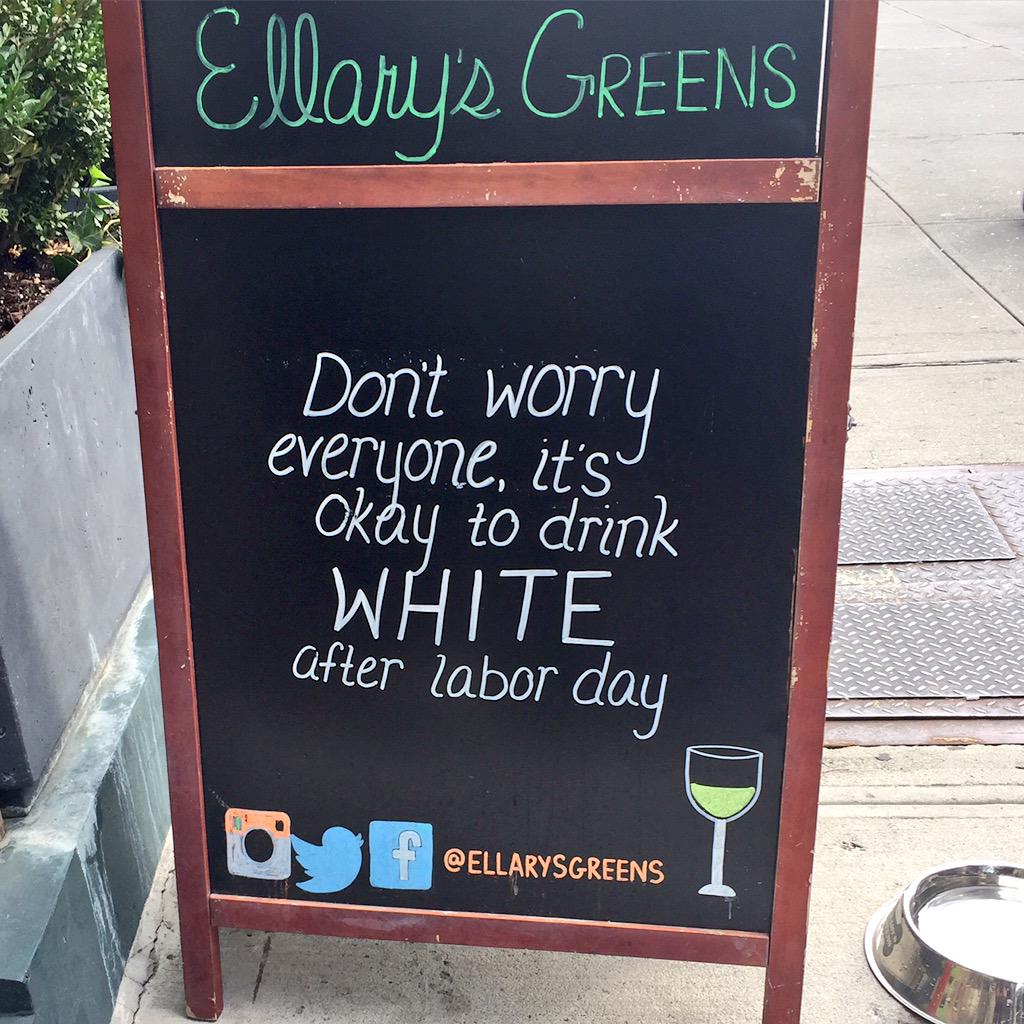 Ellary's GREENS
Don't worry
everyone, it's
okay to drink
WHITE
after labor day
f @ELLARYSGREENS